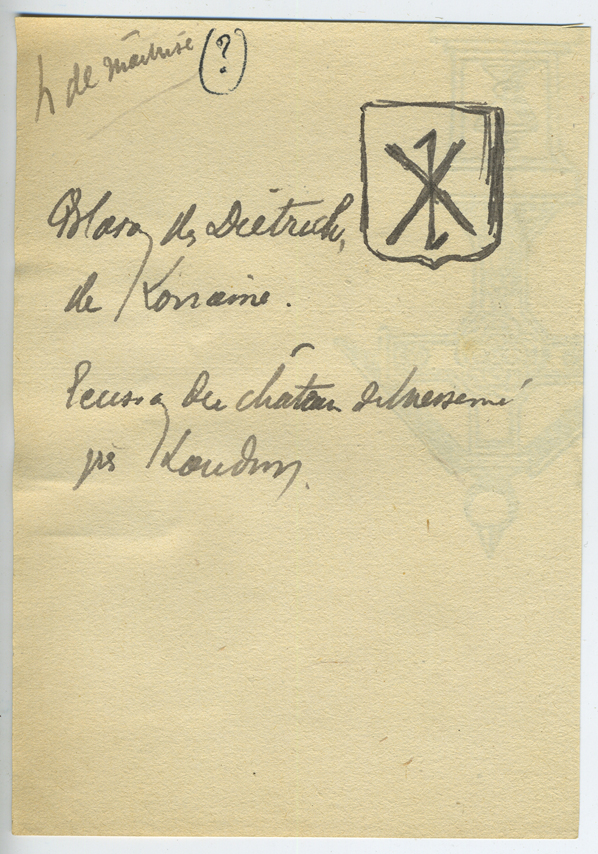 h de maîtrise (?)
Blason des Dietrich,
de Lorraine.
Ecusson du château de Messemé
près Loudun.